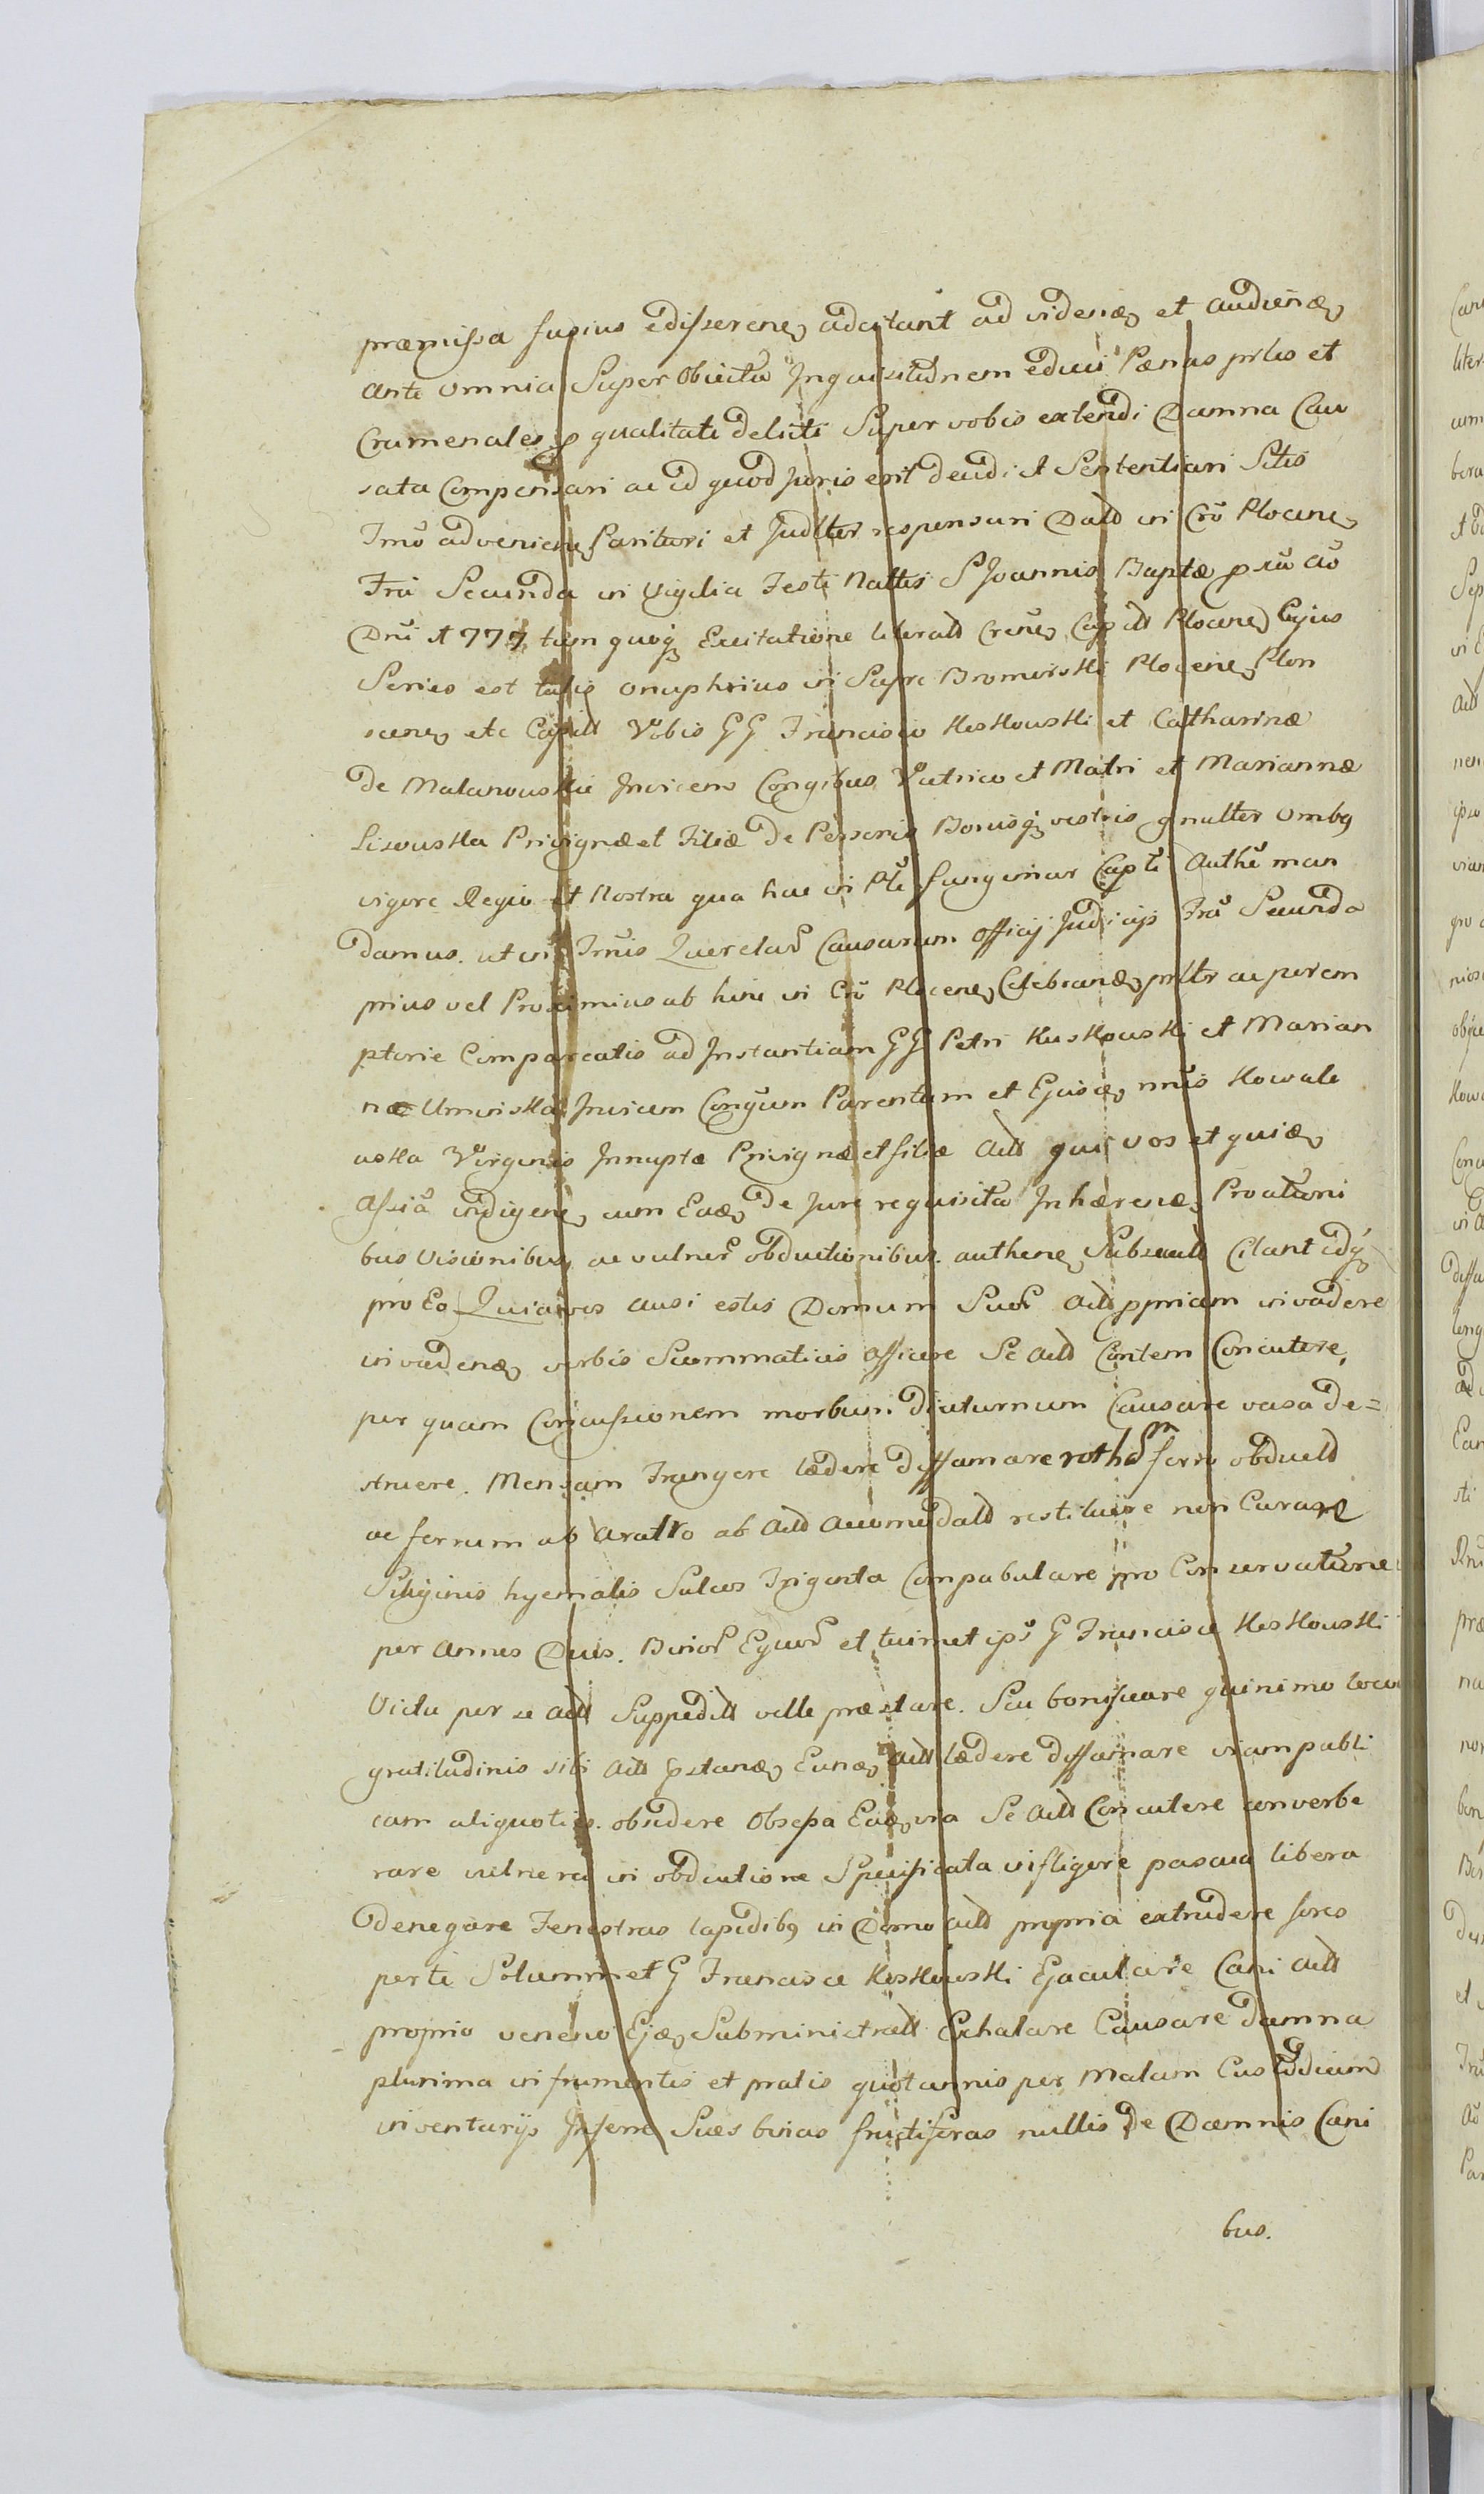 præmissa fusius edisserenꝫ adcitant ad videnꝫ et audienꝫ
ante omnia Super obiectu Inquisitionem educi Pœnas prles et
Cramenales p qualitate delicti Super vobis extendi Damna Cau
sata Compensari ac id quod juris erit decidi et Sententiari Sitis
Trno adveniene Parituri et Judltter responsuri Datt in Cro Plocene
Fria Secunda in Vigilia Festi Nattis S Joannis Baptæ pxia ao
Dni 1777 tum quoqꝫ Excitatione literatt Crene Capitt Plocene Cujus
Series est talis Onuphrius in Sepre Bromirski Plocene Plon
scene etc Capitt Vobis GG Francisco Keskowski et Catharinæ
de Malanowskie Invicem Congibus Vitrico et Matri et Mariannæ
Lisowska Privignæ et Filiæ de Personis Bonisqꝫ vestris gnalter ombꝫ
vigore Regia et Nostra qua hac in Pte fungimur Capti Authe man
damus. ut in Trnis Querelar Causarum officij Judicijs Fria Secunda
prius vel Proximius ab hinc in Cro Plocene Celebrandꝫ prltr ac perem
ptorie Compareatis ad Instantiam GG Petri Kuskowski et Marian
næ Umirska Invicem Congum Parentum et Ejusdꝫ nnis Kowale
wska Virginis Innuptæ Privignæ et filiæ Actt qui vos et quidꝫ
Assia indigene cum Eadꝫ de Jure requisita Inhærenꝫ Protationi
bus Visionibus ac vulner obductionibus authene Subsecutt Citant idqꝫ
pro Eo Quia vos ausi estis Domum Suor Actt ppriam invadere
invadendꝫ verbis Scommaticis afficere Se Actt Contem Concutere,
per quam Concussionem morbum diuturnum Causare vasa de=
struere. Mensam Frangere lædere diffamare rotham ferro obductt
ac ferrum ab Aratro ab Actt Accomodatt restituere non Curare
Siliginis hyemalis Sulcos Triginta Compabulare pro Conservatione
per Annos Duos. Binor Equor et tuimet ipsi G Francisce Keskowski
Victu per se Actt Suppeditt velle præstare. Seu bonificare quinimo loco
gratitudinis sibi Actt pstandꝫ Eundꝫ Actt lædere diffamare viam publi
cam aliquoties. obsidere Obsessa Eadꝫ via Se Actt Concutere converbe
rare vulnera in obductione Specificata infligere pascua libera
denegare Fenestras lapidibꝫ in Domo Actt propria extrudere fores
per te Solummet G Francisce Keskowski Ejaculare Cani Actt
proprio veneno Ejdꝫ Subministratt Exhalare Causare damna
plurima in frumentis et pratis quotannis per Malam Custodiam
inventarijs Inferre Sues binas fructiferas nullis de Damnis Cani
bus.